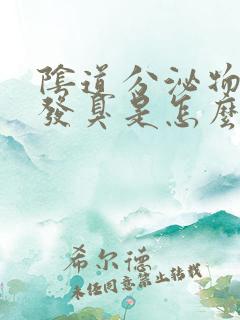 陰道分泌物
發臭是怎麼
希尔德
未经同意禁止转载